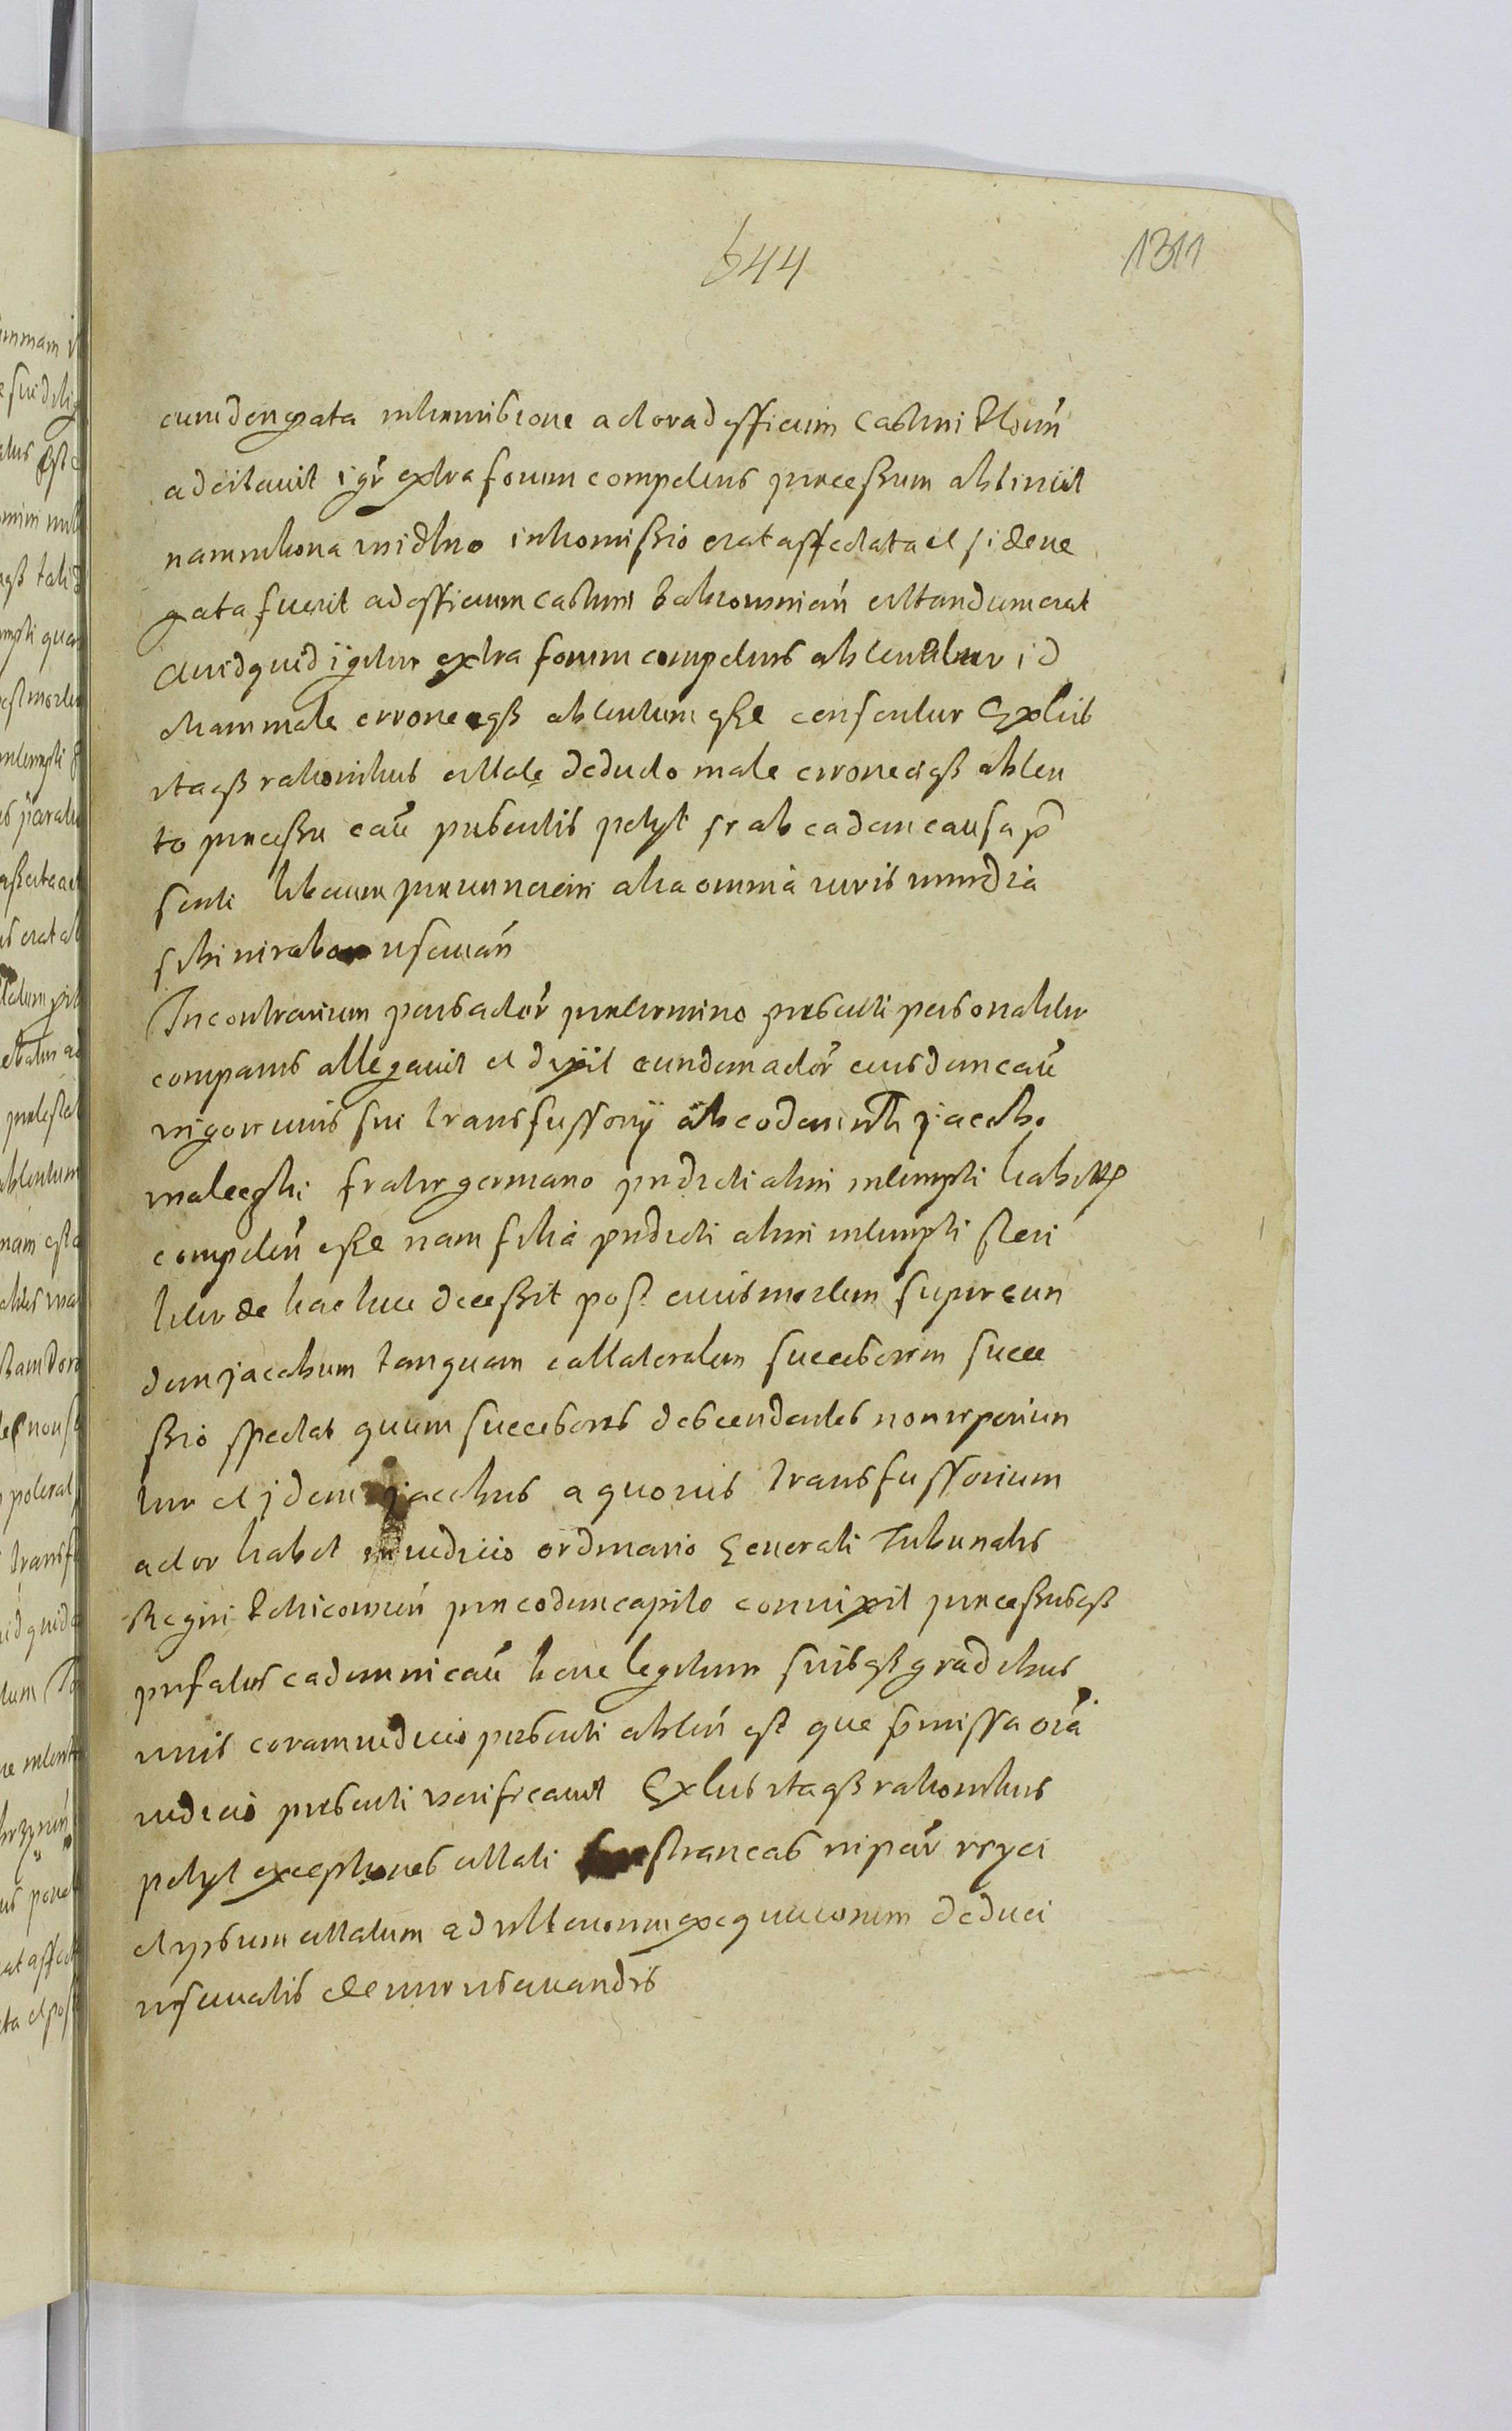 644
1311
eum denegata intromissione actor ad officium castren
adcitavit igr extra forum competens processum obtinuit
nam in bona intromissio erat affectata et si dene
gata fuerit ad officium castren citandum erat
Quidquid igitur extra forum competens obtentum id
etiam male erroneeqz obtentum esse censentur Ex his
itaqz rationibus citatus deducto male erroneeqz obten
to processu cau presentis petyt se ab eadem causa p
senti liberum pronunciari alia omnia iuris remedia
sibi reservan
In contrarium pars actor pro termino presenti personaliter
comparens allegavit et dixit eundem actor eiusdem cau
vigore iuris sui transfussory ab eodem Jacobo
fratre germano predicti olim intempti habit
competen esse nam filia predicti olim intempti steri
liter de hac luce decessit post cuius mortem super eun
dem Jacobum tanquam collateralem successorem succe
ssio spectat quum successores descendentes non reperiun
tur et idem Jacobus a quo ius transfussorium
actor habet in iudicio ordinario Generali Tribunalis
Regni pro eodem capite convixit processusqz
prefatus eadem in cau bene legitime suisqz gradibus
iuris coram iudicio presenti obten est que pmissa oia
iudicio presenti verificavit Ex his itaqz rationibus
petyt exceptiones citati extraneas reijci
et ipsum citatum ad ulteriorem exequucionem deduci
reservatis de iure reservandis